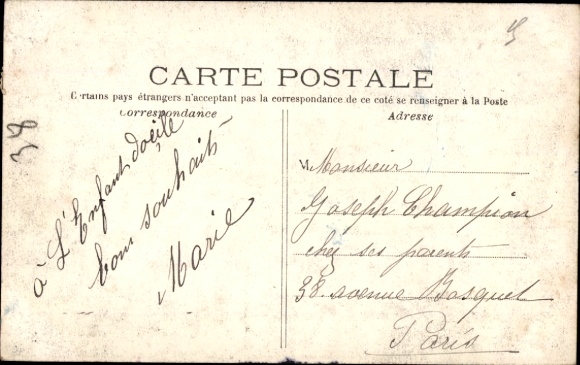 CARTE POSTALE
Certains pays étrangers n'acceptant pas la correspondance de ce coté se renseigner à la Poste
Correspondance
Adresse
38
à L'Enfant docile
bons souhaits
Marie
M Monsieur
Joseph Champion
chez ses parents
38. avenue Bosquet
Paris